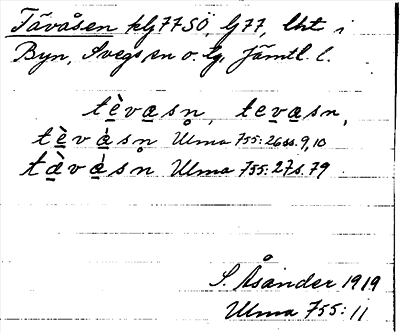 Tåvåsen klj77SÖ, lj77, lht i
Byn, Svegs sn o. tg. Jämtl. l.
tè̱va̱sn̥, te̱va̱sn,
tè̱và̱sn̥ Ulma 755:26ss.9,10
tà̱và̱sn̥ Ulma 755:27s.79
S. Åsander 1919
Ulma 755:11